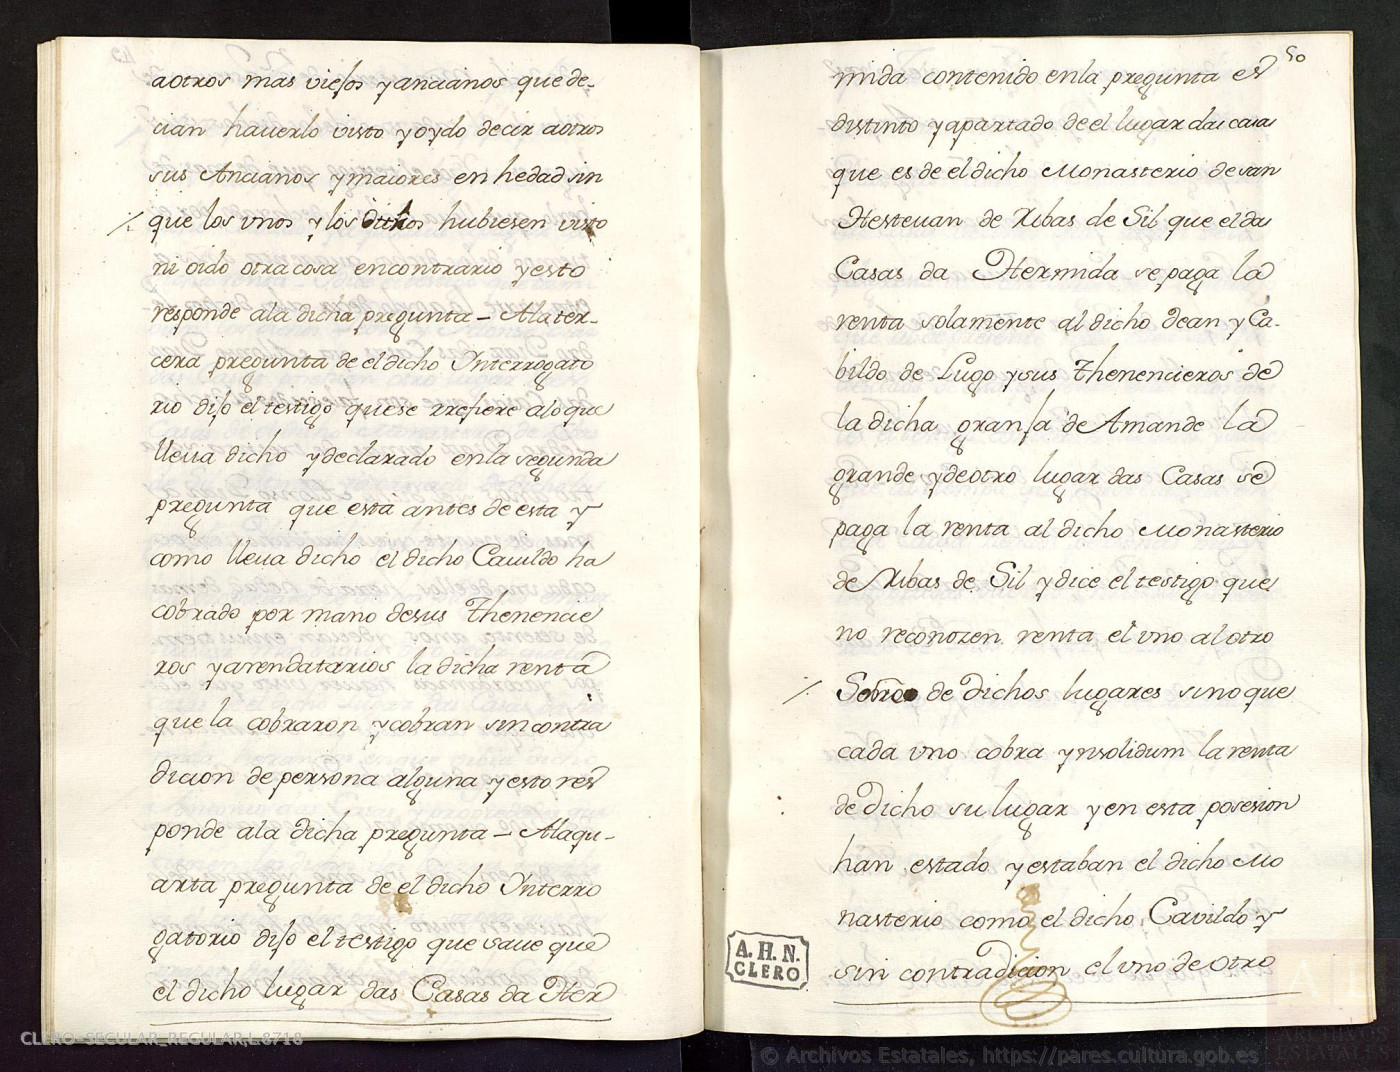 aotros mas viejos yancianos que de-
cian hauerlo visto yoydo decir aotros
sus Ancianos ymaiores en hedad sin
que los vnos y los otros hubiesen visto
ni oido otra cosa encontrario yesto
responde ala dicha pregunta - Alater-
cera pregunta de el dicho Ynterrogato
rio dijo el testigo quese rrefiere aloque
lleua dicho ydeclarado enla segunda
pregunta que está antes de esta y
como lleua dicho el dicho Cauildo ha
cobrado por mano desus Thenencie
ros yarendatarios la dicha renta
que la cobraron ycobran sin contra
dicion de persona alguna yesto res
ponde ala dicha pregunta - Alaqu-
arta pregunta de el dicho Ynterro
gatorio dijo el testigo que saue que
el dicho lugar das Casas da Her
50
mida contenido enla pregunta es
distinto yapartado de el lugar das casas
que es de el dicho Monasterio de san
Hesteuan de Ribas de Sil que el da
Casas da Hermida se paga la
renta solamente al dicho Dean y Ca-
bildo de Lugo ysus Thenencieros de
la dicha granja de Amande la
grande ydeotro lugar das Casas se
paga la renta al dicho Monasterio
de Ribas de Sil ydice el testigo que
no reconozen renta el vno al otro
Sobre de Dichos lugares sino que
cada vno cobra ynsolidum la renta
de Dicho su lugar yen esta posesion
han estado yestaban el dicho Mo
nasterio como el dicho Cavildo y
sin contradicion el vno de otro
A.H.N.
CLERO
CLERO-SECULAR_REGULAR,L.8718
© Archivos Estatales, https://pares.cultura.gob.es
ESTATALES